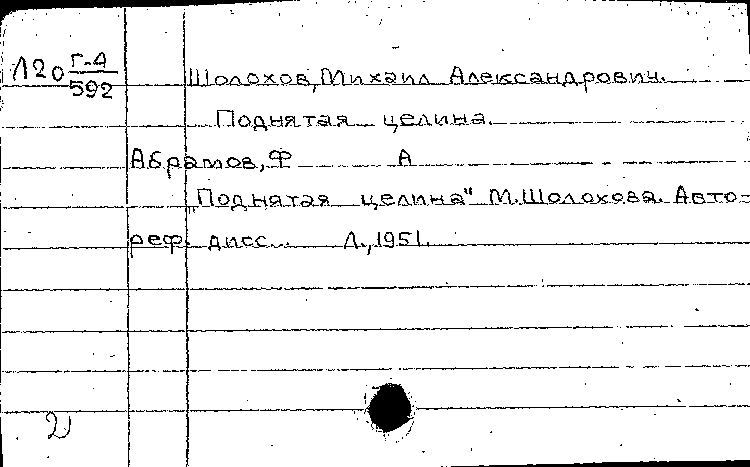 Л20 Г-4/592
Шолохов, Михаил Александрович.
Поднятая целина.
Абрамов, Ф А
„Поднятая целина" М. Шолохова. Авто-
реф. дисс. Л., 1951.
2)